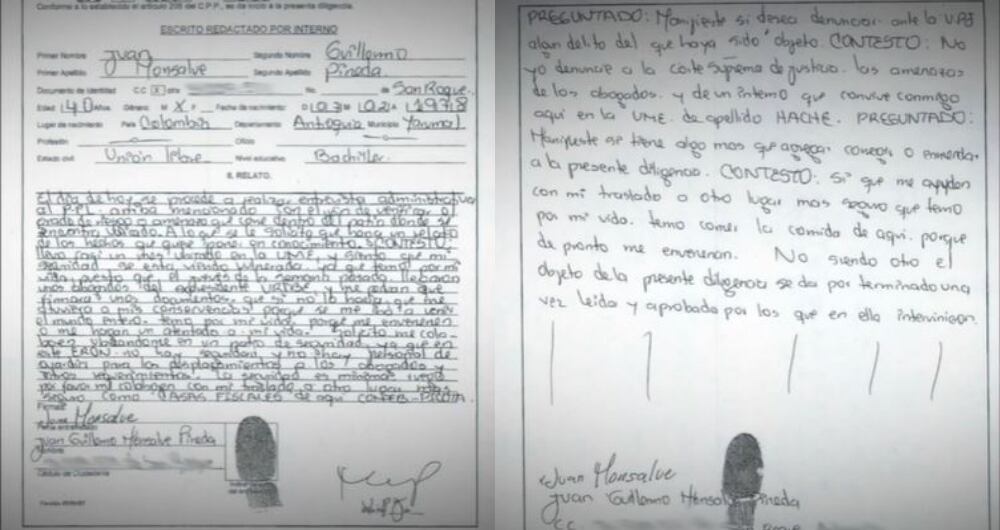 Conforme a lo establecido el artículo 205 del C.P.P., se da inicio a la presente diligencia.
ESCRITO REDACTADO POR INTERNO
Primer Nombre Juan Segundo Nombre Guillermo
Primer Apellido Monsalve Segundo Apellido Pineda
Documento de Identidad C.C. X otra No. de San Roque
Edad 40 Años. Género: M X F Fecha de nacimiento: D 03 M 02 A 1978
Lugar de nacimiento País Colombia Departamento Antioquia Municipio Yarumal
Profesión Oficio
Estado civil Unión libre Nivel educativo Bachiller
II. RELATO.
El día de hoy se procede a realizar entrevista administrativa
al P.P.L. arriba mencionado con el fin de verificar el
grado de riesgo o amenaza que corre dentro del patio donde se
encuentra ubicado. A lo que se le solicita que haga un relato
de los hechos que quiere poner en conocimiento. CONTESTO:
llevo casi un mes ubicado en la UME, y siento que mi
seguridad se esta viendo vulnerada, ya que temo por mi
vida, puesto que el jueves de la semana pasada llegaron
unos abogados del expresidente URIBE y me pedian que
firmara unos documentos, que si no lo hacia, que me
atuviera a mis consecuencias porque se me iba a venir
el mundo entero. temo por mi vida, porque me envenenen
o me hagan un atentado a mi vida. Solicito me cola-
boren ubicandome en un patio de seguridad, ya que en
este ERON no hay seguridad y no hay personal de
guardia para los desplazamientos a los abogados y
otros requerimientos. La seguridad es minima. ruego
por favor me colaboren con mi traslado a otro lugar mas
seguro como CASAS FISCALES de aqui COMEB-PICOTA
Firmas:
Juan Monsalve
Juan Guillermo Monsalve Pineda
Nombre
Cédula de Ciudadanía
PREGUNTADO: Manifieste si desea denunciar ante la UPJ
algun delito del que haya sido objeto. CONTESTO: No
yo denuncie a la corte Suprema de justicia. las amenazas
de los abogados. y de un interno que convive conmigo
aquí en la UME. de apellido HACHE. PREGUNTADO:
Manifieste si tiene algo mas que agregar, corregir o enmendar
a la presente diligencia. CONTESTO: Si que me ayuden
con mi traslado a otro lugar mas seguro que temo
por mi vida. temo comer la comida de aqui. porque
de pronto me envenenan. No siendo otro el
objeto de la presente diligencia se da por terminado una
vez leida y aprobada por los que en ella intervinieron.
Juan Monsalve
Juan Guillermo Monsalve Pineda
C.C. Roque